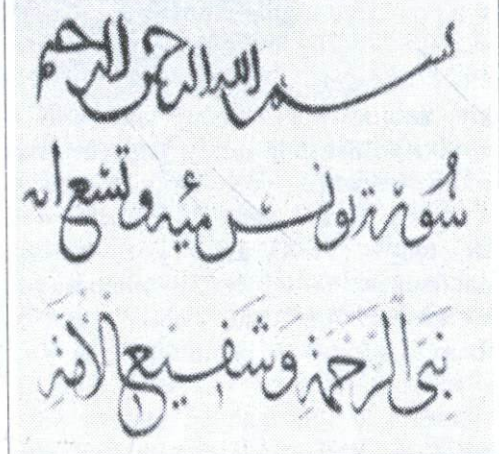 بسم الله الرحمن الرحيم
سُورة يونس مئيه وتسع ايه
نبيّ الرَّحْمَةِ وشَفِيعِ الأمّةِ